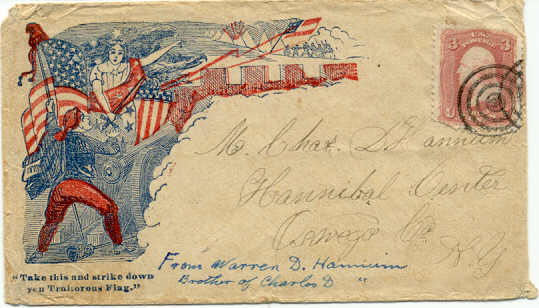 U.S. POSTAGE
3 3
M. Chas. D Hannum
Hannibal Center
Oswego Co.
N. Y
"Take this and strike down
yon Traitorous Flag."
From Warren D. Hannum
Brother of Charles D "